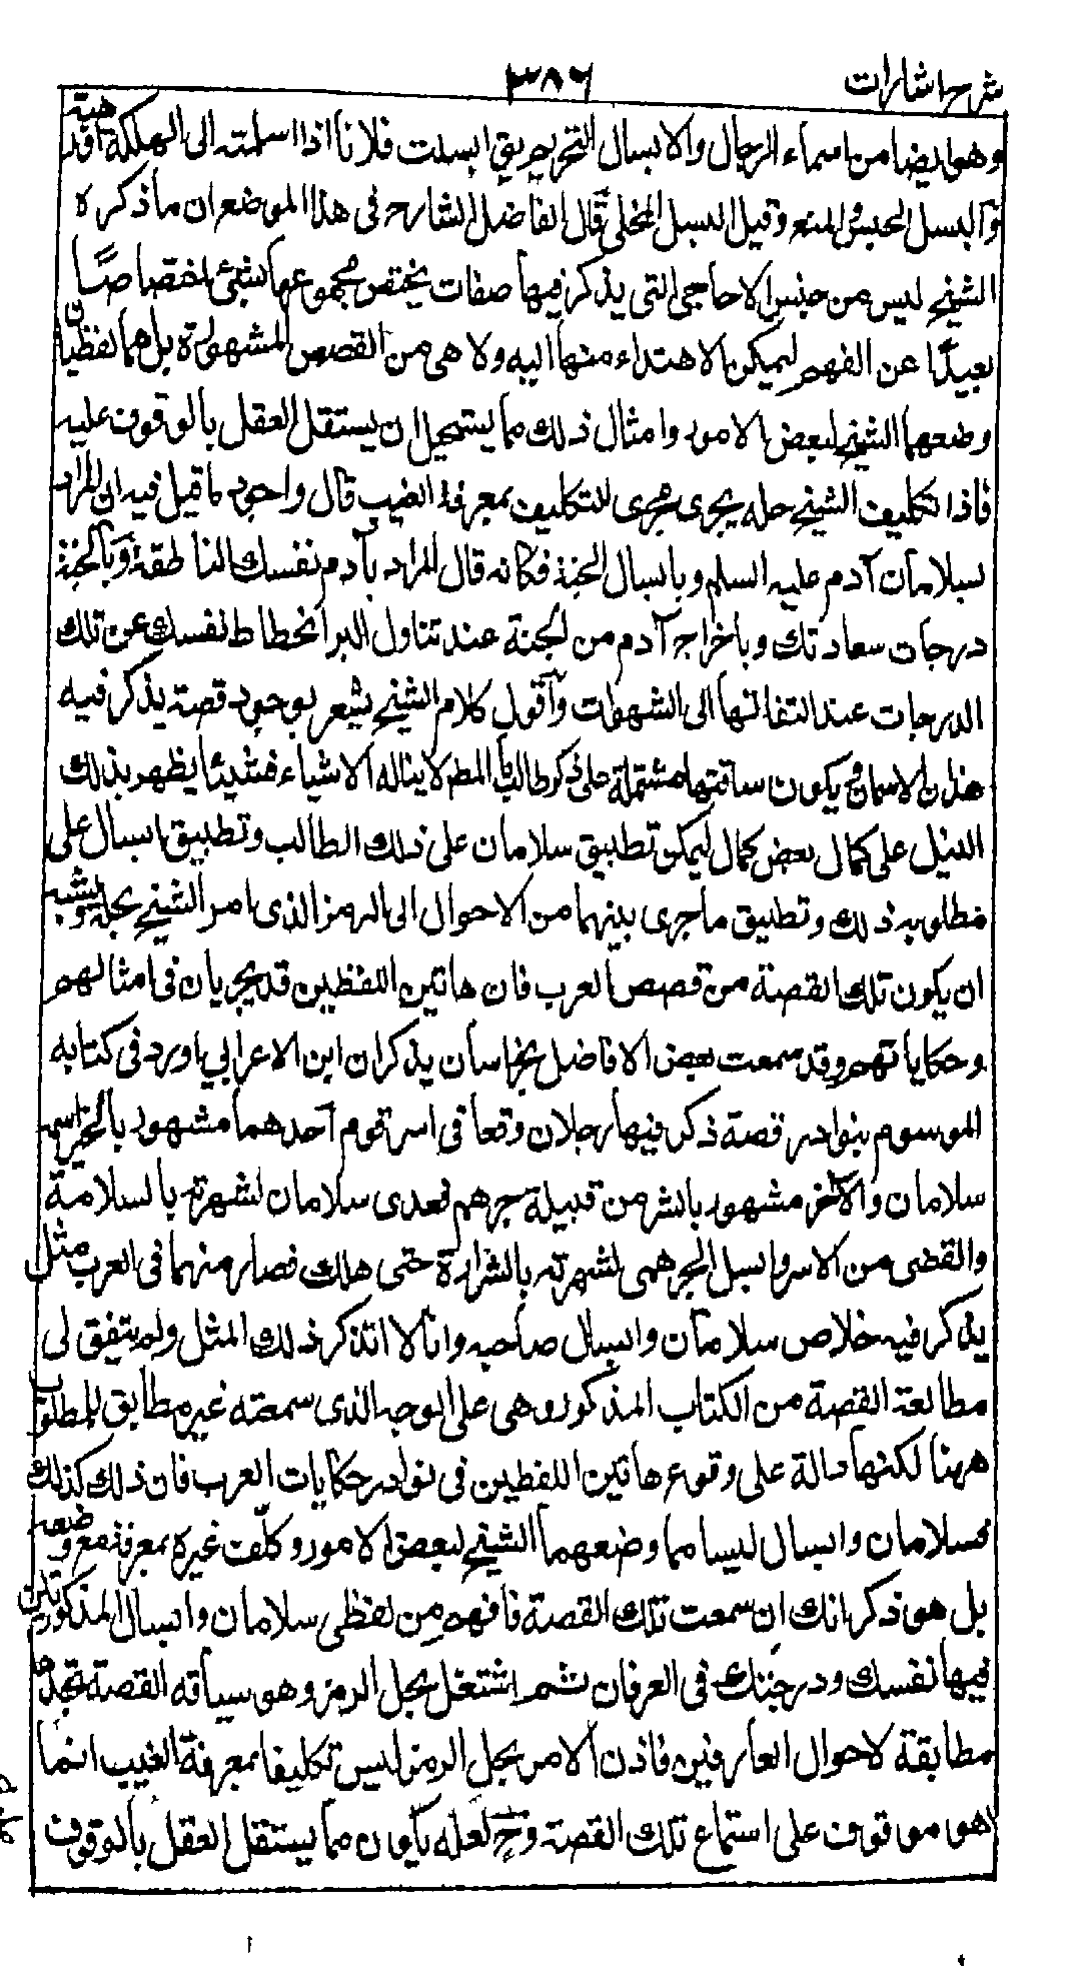 شرح اشارات
٣٨٦
وهو ايضا من اسماء الرجال والابسال التحريم يق ابسلت فلانا اذا اسلمته الى الهلكة او رهنته
والبسل الحبس والمنع وقيل البسل المخلى قال الفاضل الشارح فى هذا الموضع ان ما ذكره
الشيخ ليس من جنس الاحاجى التى يذكر فيها صفات يختص مجموعها بشئ اختصاصًا
بعيدًا عن الفهم ليمكن الاهتداء منها اليه ولا هى من القصص المشهورة بل هما لفظتان
وضعهما الشيخ لبعض الامور وامثال ذلك مما يستحيل ان يستقل العقل بالوقوف عليه
فاذا تكليف الشيخ حله يجرى مجرى التكليف بمعرفة الغيب قال واجود ما قيل فيه ان المراد
بسلامان آدم عليه السلم وبابسال الجنة فكانه قال المراد بآدم نفسك الناطقة وبالجنة
درجات سعادتك وباخراج آدم من الجنة عند تناول البر انحطاط نفسك عن تلك
الدرجات عند التفاتها الى الشهوات واقول كلام الشيخ يشعر بوجود قصة يذكر فيه
هذان الاسمان ويكون سياقتها مشتملة على ذكر طالب المط لا يناله الا شياء فشيئا يظهر بذلك
النيل على كمال بعض كمال ليمكن تطبيق سلامان على ذلك الطالب وتطبيق ابسال على
مطلوبه ذلك وتطبيق ما جرى بينهما من الاحوال الى الرمز الذى امر الشيخ بحله ويشبه
ان يكون تلك القصة من قصص العرب فان هاتين اللفظين قد يجريان فى امثالهم
وحكاياتهم وقد سمعت بعض الافاضل بخراسان يذكر ان ابن الاعرابي اورد فى كتابه
الموسوم بنوادر قصة ذكر فيها رجلان وقعا فى اسر قوم احدهما مشهور بالخير اسمه
سلامان والآخر مشهور بالشر من قبيلة جرهم فعدى سلامان لشهرته بالسلامة
والقضى من الاسر وابسل الجرهمى لشهرته بالشرارة حتى هلك فصار منهما فى العرب مثل
يذكر فيه خلاص سلامان وابسال صاحبه وانا لا اتذكر ذلك المثل ولم يتفق لى
مطالعة القصة من الكتاب المذكور وهى على الوجه الذى سمعته غير مطابق للمطلوب
ههنا لكنها دالة على وقوع هاتين اللفظين فى نوادر حكايات العرب فان ذلك كذلك
فسلامان وابسال ليسا مما وضعهما الشيخ لبعض الامور وكلف غيره بمعرفة مع وضعه
بل هو ذكر انك ان سمعت تلك القصة فافهم من لفظى سلامان وابسال المذكورتين
فيها نفسك ودرجتك فى العرفان ثم اشتغل بحل الرمز وهو سياقه القصة تجدها
مطابقة لاحوال العارفين فاذن الامر بحل الرمز ليس تكليفا بمعرفة الغيب انما
هو موقوف على استماع تلك القصة وح لعله يكون مما يستقل العقل بالوقوف